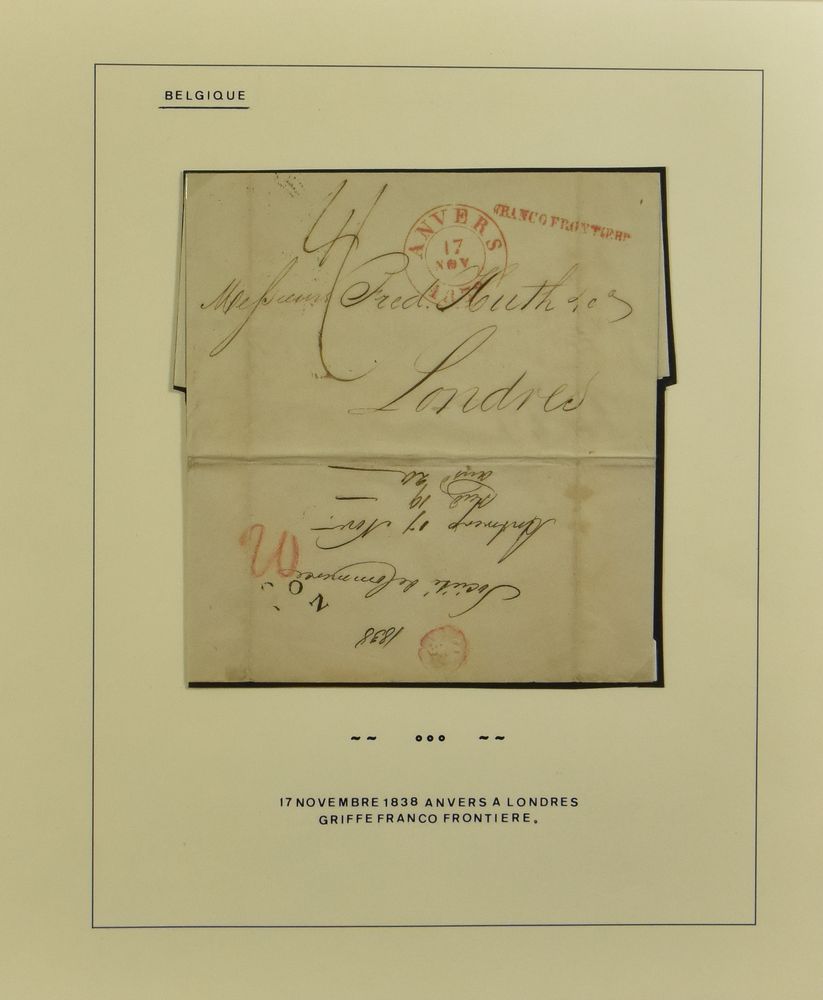 BELGIQUE
FRANCO FRONTIERE
ANVERS
17
NOV
Messieurs Fred. Huth & Co
Londres
1838
Société de Commerce
Antwerp 17 Nov.
19
20
NO
~~ ooo ~~
17 NOVEMBRE 1838 ANVERS A LONDRES
GRIFFE FRANCO FRONTIERE.